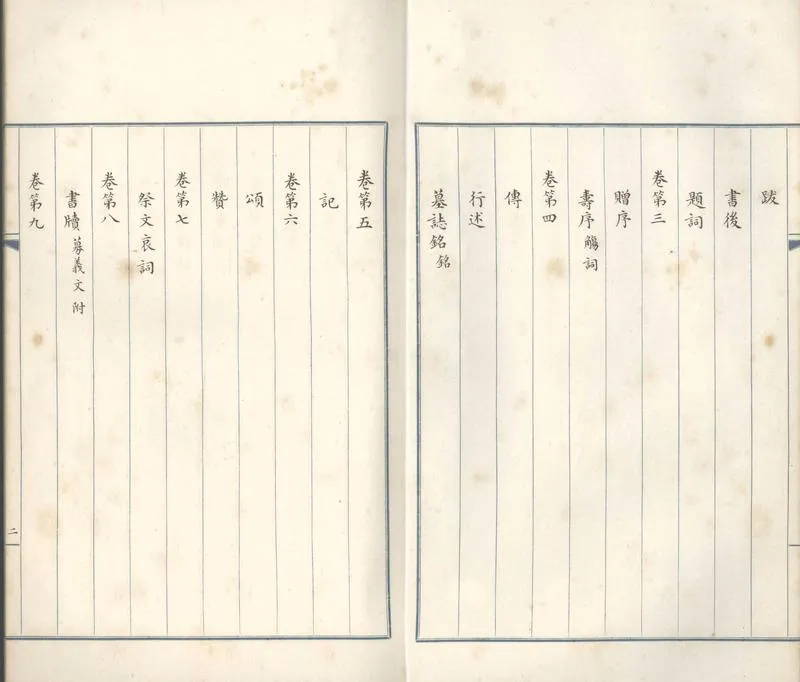 跋
書後
題詞
卷第三
贈序
壽序觴詞
卷第四
傳
行述
墓誌銘銘
卷第五
記
卷第六
頌
贊
卷第七
祭文哀詞
卷第八
書牘募義文附
卷第九
二